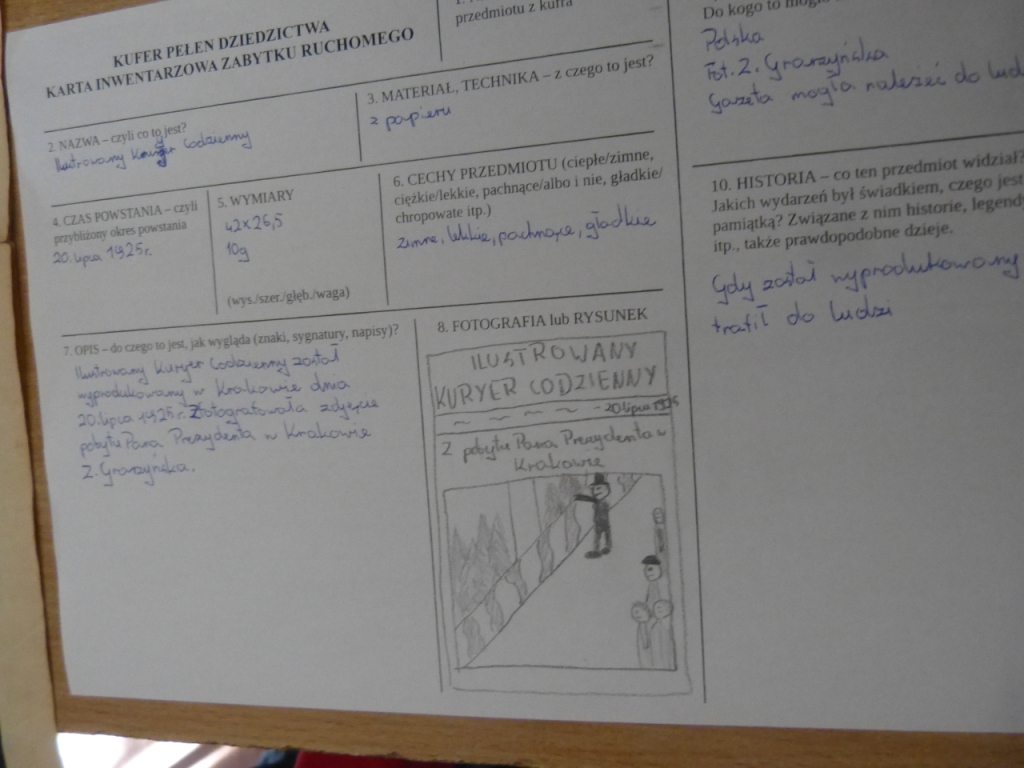 KUFER PEŁEN DZIEDZICTWA
KARTA INWENTARZOWA ZABYTKU RUCHOMEGO
przedmiotu z kufra
2. NAZWA – czyli co to jest?
Ilustrowany Kuryer Codzienny
3. MATERIAŁ, TECHNIKA – z czego to jest?
z papieru
4. CZAS POWSTANIA – czyli
przybliżony okres powstania
20. lipca 1925r.
5. WYMIARY
42x26,5
10g
(wys./szer./głęb./waga)
6. CECHY PRZEDMIOTU (ciepłe/zimne,
ciężkie/lekkie, pachnące/albo i nie, gładkie/
chropowate itp.)
zimne, lekkie, pachnące, gładkie
7. OPIS – do czego to jest, jak wygląda (znaki, sygnatury, napisy)?
Ilustrowany Kuryer Codzienny został
wyprodukowany w Krakowie dnia
20. lipca 1925 r. Zfotografowała zdjęcie
pobytu Pana Prezydenta w Krakowie
Z. Grarzyńska.
8. FOTOGRAFIA lub RYSUNEK
ILUSTROWANY
KURYER CODZIENNY
20 lipca 1925
Z pobytu Pana Prezydenta w
Krakowie
Do kogo to mogło
Polska
Fot. Z. Grarzyńska
Gazeta mogła należeć do lud
10. HISTORIA – co ten przedmiot widział?
Jakich wydarzeń był świadkiem, czego jest
pamiątką? Związane z nim historie, legendy
itp., także prawdopodobne dzieje.
Gdy został wyprodukowany
trafił do ludzi